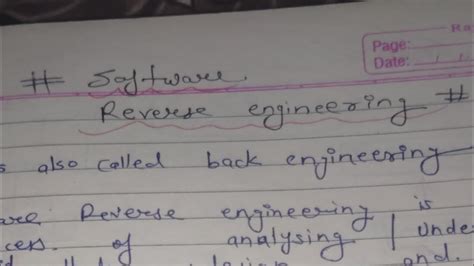 Page:
Date: / /
# Software
Reverse engineering #
also called back engineering
Reverse engineering is
of analysing / Unde
and.